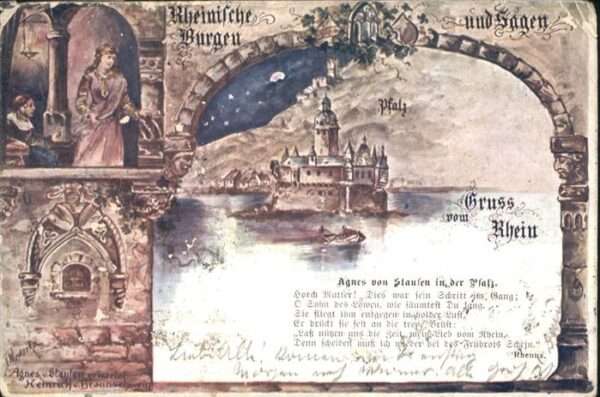 Rheinische und Sagen
Burgen
Pfalz
Gruss
vom Rhein
Agnes von Staufen in der Pfalz.
Horch Mutter! Dies war sein Schritt im Gang;
O Sohn des Löwen, wie säumtest Du lang.
Sie fliegt ihm entgegen in holder Lust,
Er drückt sie fest an die treue Brust:
"Laß nützen uns die Zeit, mein Lieb vom Rhein,
Denn scheiden muß ich wieder bei des Frührots Schein."
Rhenus.
Agnes v Staufen erwartet
Heinrich v Braunschweig